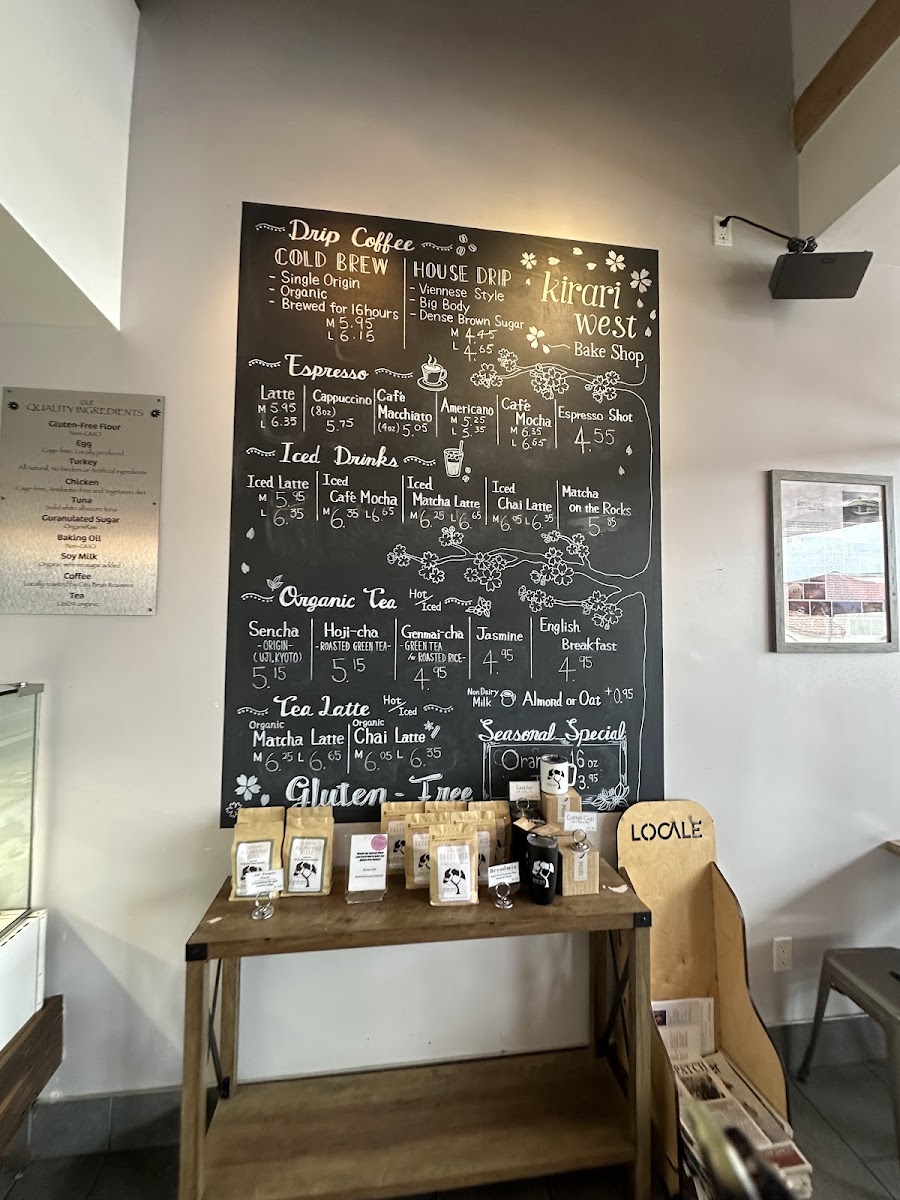 Drip Coffee
COLD BREW
- Single Origin
- Organic
- Brewed for 16hours
M 5.95
L 6.15
HOUSE DRIP
- Viennese Style
- Big Body
- Dense Brown Sugar
M 4.45
L 4.65
kirari
west
Bake Shop
Espresso
Latte
M 5.95
L 6.35
Cappuccino
(8oz)
5.75
Cafè
Macchiato
(4oz) 5.05
Americano
M 5.25
L 5.35
Cafè
Mocha
M 6.35
L 6.65
Espresso Shot
4.55
Iced Drinks
Iced Latte
M 5.95
L 6.35
Iced
Cafè Mocha
M 6.35 L 6.65
Iced
Matcha Latte
M 6.25 L 6.65
Iced
Chai Latte
M 6.05 L 6.35
Matcha
on the Rocks
5.85
Organic Tea Hot/Iced
Sencha
-ORIGIN-
(UJI.KYOTO)
5.15
Hoji-cha
-ROASTED GREEN TEA-
5.15
Genmai-cha
-GREEN TEA
w/ ROASTED RICE-
4.95
Jasmine
4.95
English
Breakfast
4.95
Tea Latte Hot/Iced
Organic
Matcha Latte
M 6.25 L 6.65
Organic
Chai Latte
M 6.05 L 6.35
Non Dairy
Milk
Almond or Oat +0.95
Seasonal Special
6 oz
3.95
Gluten-Free
OUR
QUALITY INGREDIENTS
Gluten-Free Flour
Non-GMO
Egg
Cage-free, Locally produced
Turkey
All natural, No binders or Artificial ingredients
Chicken
Cage-free, Antibiotic-free and Vegetarian diet
Tuna
Solid white albacore tuna
Guranulated Sugar
Baking Oil
Non-GMO
Soy Milk
Organic with no sugar added
Coffee
Locally roasted by City Bean Roasters
Tea
USDA organic
LOCALE